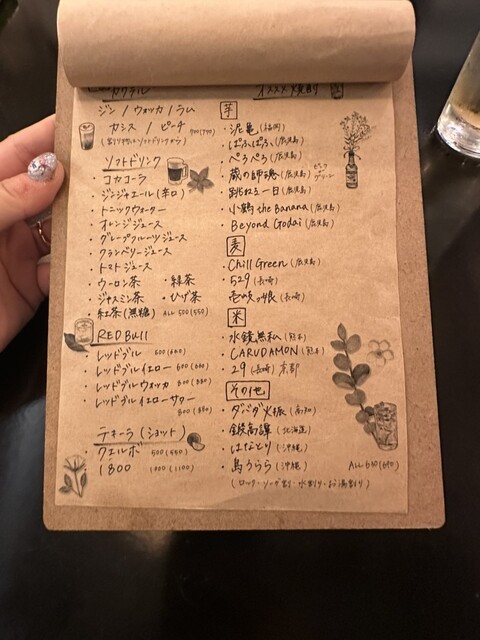 カクテル
ジン / ウォッカ / ラム
カシス / ピーチ 700(770)
ソフトドリンク
・コカコーラ
・ジンジャエール(辛口)
・トニックウォーター
・オレンジジュース
・グレープフルーツジュース
・クランベリージュース
・トマトジュース
・ウーロン茶 ・緑茶
・ジャスミン茶 ・ひげ茶
・紅茶(無糖) ALL 500(550)
RED Bull
・レッドブル 600(660)
・レッドブルイエロー 600(660)
・レッドブルウォッカ 800(880)
・レッドブルイエローサワー
800(880)
テキーラ(ショット)
・クエルボ 500(550)
・1800 1000(1100)
オススメ焼酎
芋
・泥亀(福岡)
・ぱふぱふ(鹿児島)
・ぺろぺろ(鹿児島)
・蔵の師魂(鹿児島)
・跳ねる一日(鹿児島)
・小鶴 the Banana(鹿児島)
・Beyond Godai(鹿児島)
麦
・Chill Green(鹿児島)
・529(長崎)
・壱岐っ娘(長崎)
米
・水鏡無私(熊本)
・CARUDAMON(熊本)
・29(長崎) 京都
その他
・ダバダ火振(高知)
・鍛高譚(北海道)
・はなとり(沖縄)
・島うらら(沖縄) ALL 600(660)
(ロック・ソーダ割・水割り・お湯割り)